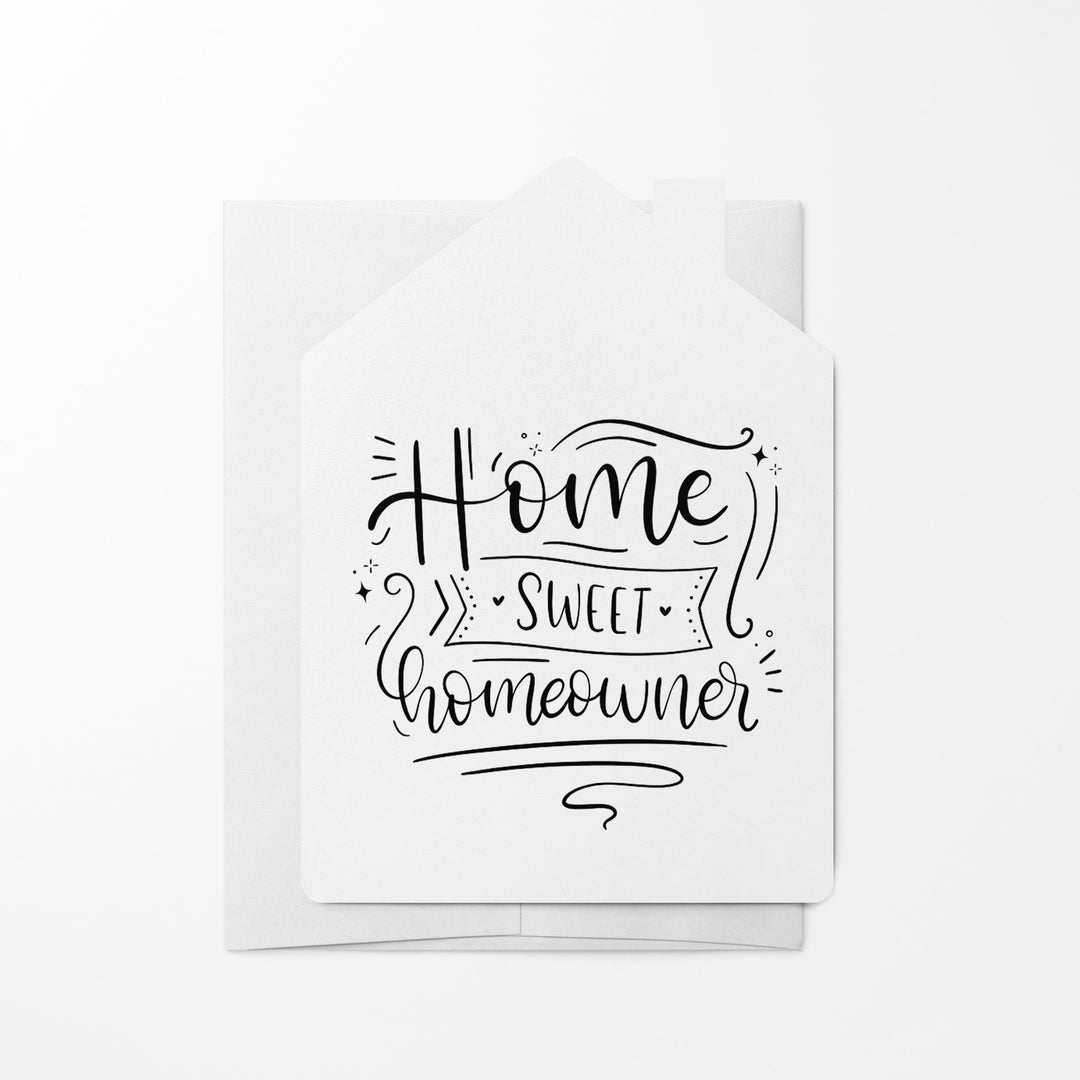 Home
SWEET
homeowner